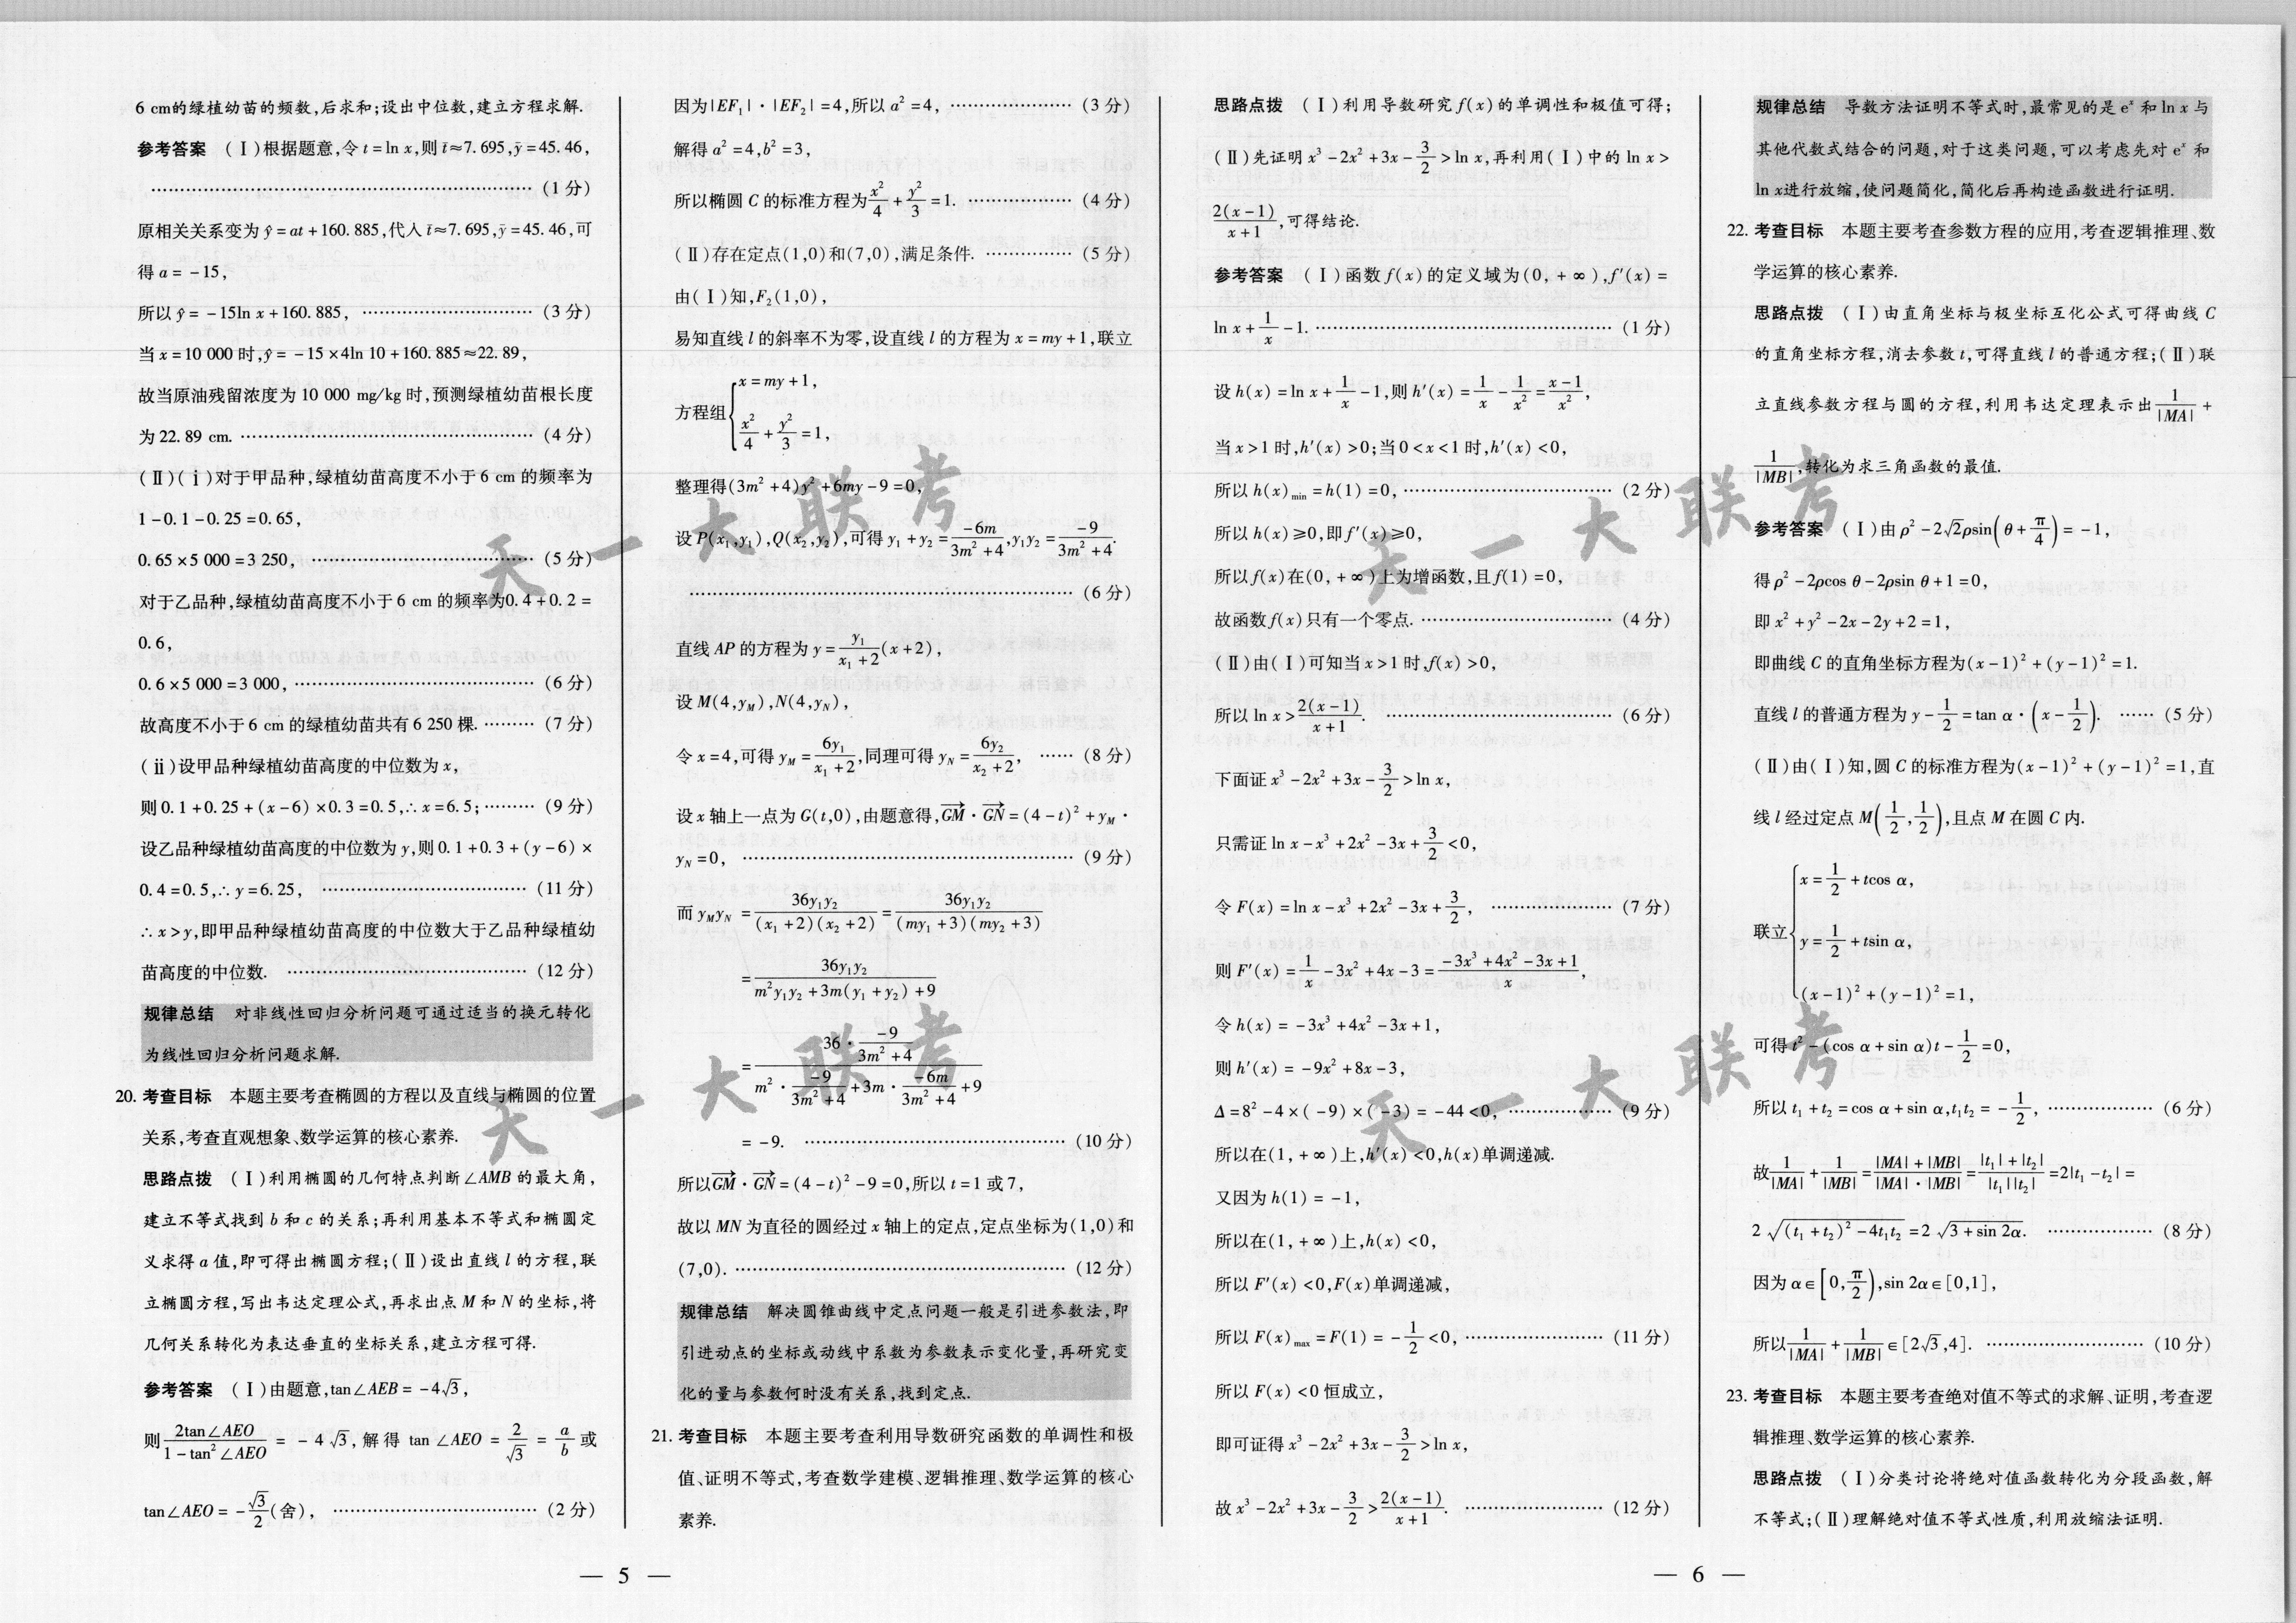 6 cm的绿植幼苗的频数,后求和;设出中位数,建立方程求解.
参考答案 (Ⅰ)根据题意,令 t = ln x,则 t̄≈7.695,ȳ = 45.46,
…………(1 分)
原相关关系变为 ŷ = at + 160.885,代入 t̄≈7.695,ȳ = 45.46,可
得 a = -15,
所以 ŷ = -15ln x + 160.885, …………(3 分)
当 x = 10 000 时,ŷ = -15 × 4ln 10 + 160.885≈22.89,
故当原油残留浓度为 10 000 mg/kg 时,预测绿植幼苗根长度
为 22.89 cm. …………(4 分)
(Ⅱ)(ⅰ)对于甲品种,绿植幼苗高度不小于 6 cm 的频率为
1 - 0.1 - 0.25 = 0.65,
0.65 × 5 000 = 3 250, …………(5 分)
对于乙品种,绿植幼苗高度不小于 6 cm 的频率为0.4 + 0.2 =
0.6,
0.6 × 5 000 = 3 000, …………(6 分)
故高度不小于 6 cm 的绿植幼苗共有 6 250 棵. …………(7 分)
(ⅱ)设甲品种绿植幼苗高度的中位数为 x,
则 0.1 + 0.25 + (x - 6) × 0.3 = 0.5,∴ x = 6.5; …………(9 分)
设乙品种绿植幼苗高度的中位数为 y,则 0.1 + 0.3 + (y - 6) ×
0.4 = 0.5,∴ y = 6.25, …………(11 分)
∴ x > y,即甲品种绿植幼苗高度的中位数大于乙品种绿植幼
苗高度的中位数. …………(12 分)
规律总结 对非线性回归分析问题可通过适当的换元转化
为线性回归分析问题求解.
20. 考查目标 本题主要考查椭圆的方程以及直线与椭圆的位置
关系,考查直观想象、数学运算的核心素养.
思路点拨 (Ⅰ)利用椭圆的几何特点判断∠AMB 的最大角,
建立不等式找到 b 和 c 的关系;再利用基本不等式和椭圆定
义求得 a 值,即可得出椭圆方程;(Ⅱ)设出直线 l 的方程,联
立椭圆方程,写出韦达定理公式,再求出点 M 和 N 的坐标,将
几何关系转化为表达垂直的坐标关系,建立方程可得.
参考答案 (Ⅰ)由题意,tan∠AEB = -4√3,
则 2tan∠AEO/(1 - tan²∠AEO) = -4√3,解得 tan∠AEO = 2/√3 = a/b 或
tan∠AEO = -√3/2(舍), …………(2 分)
因为|EF₁|·|EF₂| = 4,所以 a² = 4, …………(3 分)
解得 a² = 4,b² = 3,
所以椭圆 C 的标准方程为 x²/4 + y²/3 = 1. …………(4 分)
(Ⅱ)存在定点(1,0)和(7,0),满足条件. …………(5 分)
由(Ⅰ)知,F₂(1,0),
易知直线 l 的斜率不为零,设直线 l 的方程为 x = my + 1,联立
方程组{x = my + 1,
x²/4 + y²/3 = 1,
整理得(3m² + 4)y² + 6my - 9 = 0,
设 P(x₁,y₁),Q(x₂,y₂),可得 y₁ + y₂ = -6m/(3m² + 4),y₁y₂ = -9/(3m² + 4).
…………(6 分)
直线 AP 的方程为 y = y₁/(x₁ + 2)(x + 2),
设 M(4,y_M),N(4,y_N),
令 x = 4,可得 y_M = 6y₁/(x₁ + 2),同理可得 y_N = 6y₂/(x₂ + 2), ……(8 分)
设 x 轴上一点为 G(t,0),由题意得,GM→·GN→ = (4 - t)² + y_M·
y_N = 0, …………(9 分)
而 y_M y_N = 36y₁y₂/((x₁ + 2)(x₂ + 2)) = 36y₁y₂/((my₁ + 3)(my₂ + 3))
= 36y₁y₂/(m²y₁y₂ + 3m(y₁ + y₂) + 9)
= (36·-9/(3m² + 4))/(m²·-9/(3m² + 4) + 3m·-6m/(3m² + 4) + 9)
= -9. …………(10 分)
所以GM→·GN→ = (4 - t)² - 9 = 0,所以 t = 1 或 7,
故以 MN 为直径的圆经过 x 轴上的定点,定点坐标为(1,0)和
(7,0). …………(12 分)
规律总结 解决圆锥曲线中定点问题一般是引进参数法,即
引进动点的坐标或动线中系数为参数表示变化量,再研究变
化的量与参数何时没有关系,找到定点.
21. 考查目标 本题主要考查利用导数研究函数的单调性和极
值、证明不等式,考查数学建模、逻辑推理、数学运算的核心
素养.
— 5 —
思路点拨 (Ⅰ)利用导数研究 f(x)的单调性和极值可得;
(Ⅱ)先证明 x³ - 2x² + 3x - 3/2 > ln x,再利用(Ⅰ)中的 ln x >
2(x - 1)/(x + 1),可得结论.
参考答案 (Ⅰ)函数 f(x)的定义域为(0, + ∞),f′(x) =
ln x + 1/x - 1. …………(1 分)
设 h(x) = ln x + 1/x - 1,则 h′(x) = 1/x - 1/x² = (x - 1)/x²,
当 x > 1 时,h′(x) > 0;当 0 < x < 1 时,h′(x) < 0,
所以 h(x)min = h(1) = 0, …………(2 分)
所以 h(x)≥0,即 f′(x)≥0,
所以 f(x)在(0, + ∞)上为增函数,且 f(1) = 0,
故函数 f(x)只有一个零点. …………(4 分)
(Ⅱ)由(Ⅰ)可知当 x > 1 时,f(x) > 0,
所以 ln x > 2(x - 1)/(x + 1). …………(6 分)
下面证 x³ - 2x² + 3x - 3/2 > ln x,
只需证 ln x - x³ + 2x² - 3x + 3/2 < 0,
令 F(x) = ln x - x³ + 2x² - 3x + 3/2, …………(7 分)
则 F′(x) = 1/x - 3x² + 4x - 3 = (-3x³ + 4x² - 3x + 1)/x,
令 h(x) = -3x³ + 4x² - 3x + 1,
则 h′(x) = -9x² + 8x - 3,
Δ = 8² - 4 × ( - 9) × ( - 3) = -44 < 0, …………(9 分)
所以在(1, + ∞)上,h′(x) < 0,h(x)单调递减.
又因为 h(1) = -1,
所以在(1, + ∞)上,h(x) < 0,
所以 F′(x) < 0,F(x)单调递减,
所以 F(x)max = F(1) = -1/2 < 0, …………(11 分)
所以 F(x) < 0 恒成立,
即可证得 x³ - 2x² + 3x - 3/2 > ln x,
故 x³ - 2x² + 3x - 3/2 > 2(x - 1)/(x + 1). …………(12 分)
规律总结 导数方法证明不等式时,最常见的是 eˣ 和 ln x 与
其他代数式结合的问题,对于这类问题,可以考虑先对 eˣ 和
ln x进行放缩,使问题简化,简化后再构造函数进行证明.
22. 考查目标 本题主要考查参数方程的应用,考查逻辑推理、数
学运算的核心素养.
思路点拨 (Ⅰ)由直角坐标与极坐标互化公式可得曲线 C
的直角坐标方程,消去参数 t,可得直线 l 的普通方程;(Ⅱ)联
立直线参数方程与圆的方程,利用韦达定理表示出 1/|MA| +
1/|MB|,转化为求三角函数的最值.
参考答案 (Ⅰ)由 ρ² - 2√2ρsin(θ + π/4) = -1,
得 ρ² - 2ρcos θ - 2ρsin θ + 1 = 0,
即 x² + y² - 2x - 2y + 2 = 1,
即曲线 C 的直角坐标方程为(x - 1)² + (y - 1)² = 1.
直线 l 的普通方程为 y - 1/2 = tan α·(x - 1/2). ……(5 分)
(Ⅱ)由(Ⅰ)知,圆 C 的标准方程为(x - 1)² + (y - 1)² = 1,直
线 l 经过定点 M(1/2,1/2),且点 M 在圆 C 内.
联立{x = 1/2 + tcos α,
y = 1/2 + tsin α,
(x - 1)² + (y - 1)² = 1,
可得 t² - (cos α + sin α)t - 1/2 = 0,
所以 t₁ + t₂ = cos α + sin α,t₁t₂ = -1/2, …………(6 分)
故 1/|MA| + 1/|MB| = (|MA| + |MB|)/(|MA|·|MB|) = (|t₁| + |t₂|)/(|t₁||t₂|) = 2|t₁ - t₂| =
2√((t₁ + t₂)² - 4t₁t₂) = 2√(3 + sin 2α). …………(8 分)
因为 α∈[0,π/2),sin 2α∈[0,1],
所以 1/|MA| + 1/|MB| ∈[2√3,4]. …………(10 分)
23. 考查目标 本题主要考查绝对值不等式的求解、证明,考查逻
辑推理、数学运算的核心素养.
思路点拨 (Ⅰ)分类讨论将绝对值函数转化为分段函数,解
不等式;(Ⅱ)理解绝对值不等式性质,利用放缩法证明.
— 6 —
天一大联考
天一大联考
天一大联考
天一大联考